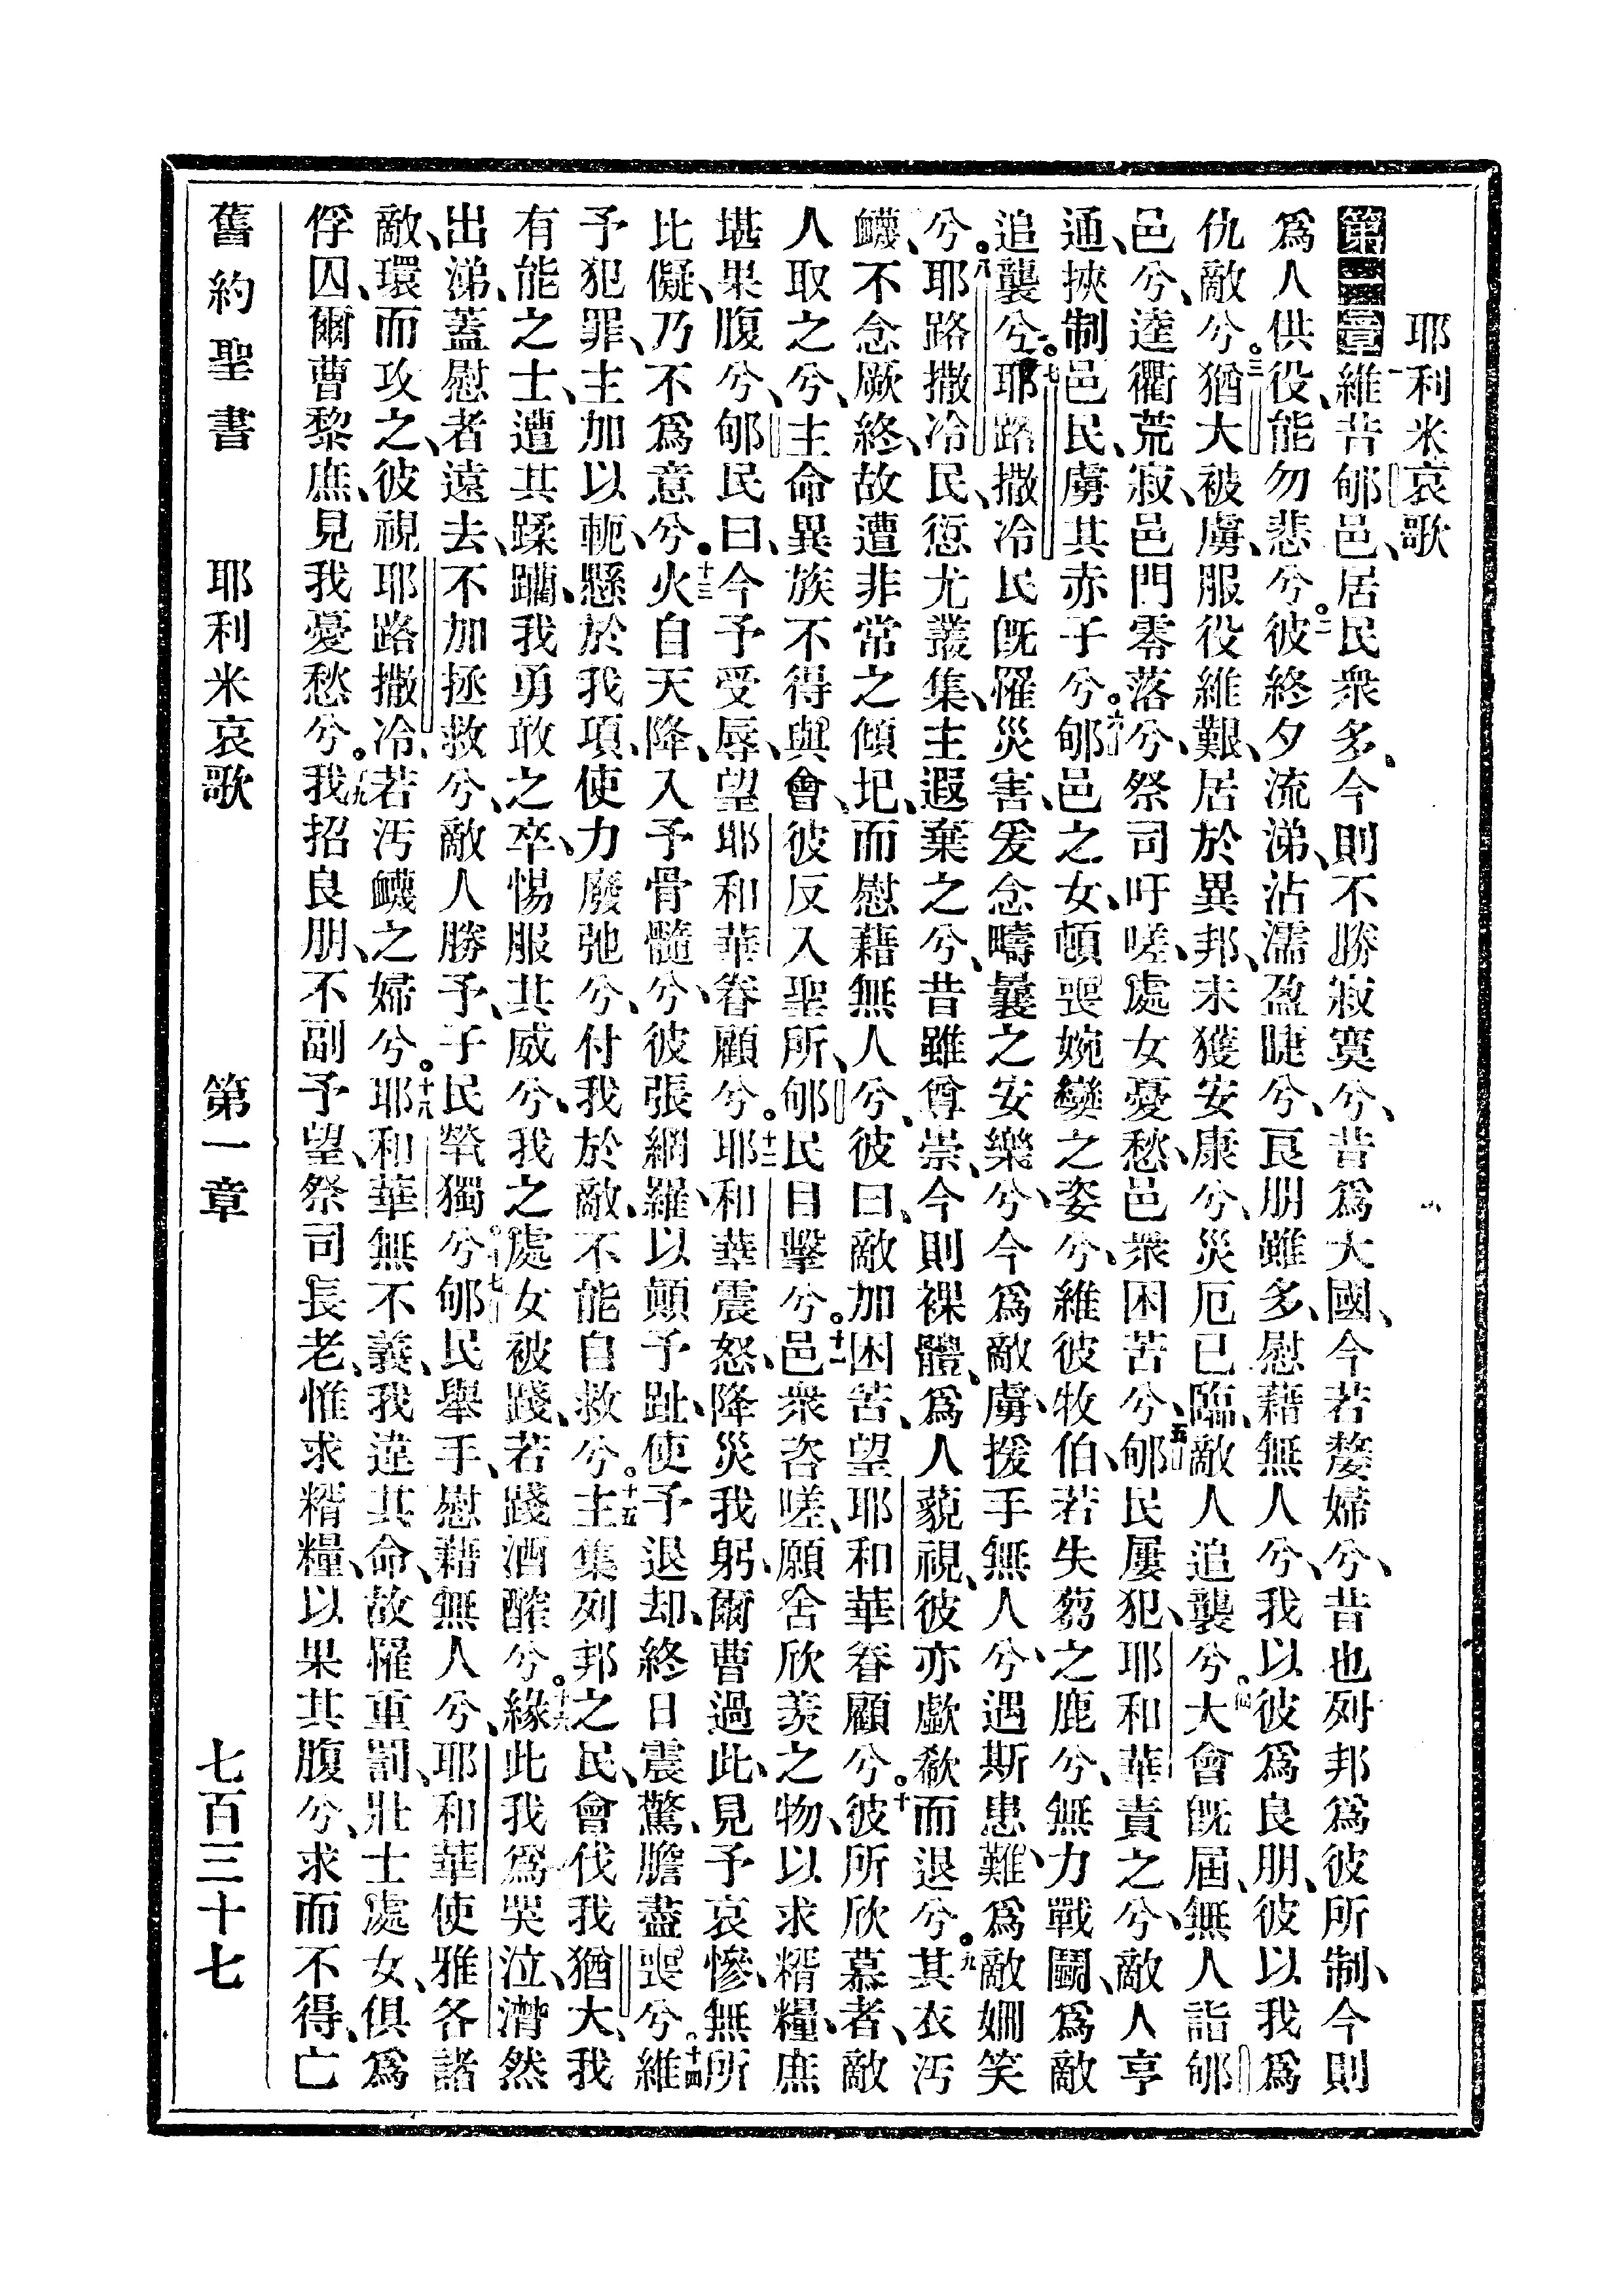 耶利米哀歌
第一章一維昔郇邑、居民衆多、今則不勝寂寞兮、昔爲大國、今若嫠婦兮、昔也列邦爲彼所制、今則
爲人供役、能勿悲兮。二彼終夕流涕、沾濡盈睫兮、良朋雖多、慰藉無人兮、我以彼爲良朋、彼以我爲
仇敵兮。三猶大被虜、服役維艱、居於異邦、未獲安康兮、災厄已臨、敵人追襲兮。四大會旣屆、無人詣郇
邑兮、逵衢荒寂、邑門零落兮、祭司吁嗟、處女憂愁、邑衆困苦兮、五郇民屢犯、耶和華責之兮、敵人亨
通、挾制邑民、虜其赤子兮。六郇邑之女、頓喪婉孌之姿兮、維彼牧伯、若失芻之鹿兮、無力戰鬬、爲敵
追襲兮。七耶路撒冷民旣罹災害、爰念疇曩之安樂兮、今爲敵虜、援手無人兮、遇斯患難、爲敵姍笑
兮。八耶路撒冷民、愆尤叢集、主遐棄之兮、昔雖尊崇、今則裸體、爲人藐視、彼亦歔欷而退兮。九其衣汚
衊、不念厥終、故遭非常之傾圮、而慰藉無人兮、彼曰、敵加困苦、望耶和華眷顧兮。十彼所欣慕者、敵
人取之兮、主命異族不得與會、彼反入聖所、郇民目擊兮。十一邑衆咨嗟、願舍欣羨之物、以求糈糧、庶
堪果腹兮、郇民曰、今予受辱、望耶和華眷顧兮。十二耶和華震怒、降災我躬、爾曹過此、見予哀慘、無所
比儗、乃不爲意兮。十三火自天降、入予骨髓兮、彼張網羅、以顛予趾、使予退却、終日震驚、膽盡喪兮。十四維
予犯罪、主加以軛、懸於我項、使力廢弛兮、付我於敵、不能自救兮。十五主集列邦之民、會伐我猶大、我
有能之士、遭其蹂躪、我勇敢之卒、惕服其威兮、我之處女被踐、若踐酒醡兮。十六緣此我爲哭泣、潸然
出涕、蓋慰者遠去、不加拯救兮、敵人勝予、子民煢獨兮。十七郇民舉手、慰藉無人兮、耶和華使雅各諸
敵、環而攻之、彼視耶路撒冷、若汚衊之婦兮。十八耶和華無不義、我違其命、故罹重罰、壯士處女、俱爲
俘囚、爾曹黎庶、見我憂愁兮。十九我招良朋、不副予望、祭司長老、惟求糈糧、以果其腹兮、求而不得、亡
舊約聖書 耶利米哀歌 第一章 七百三十七